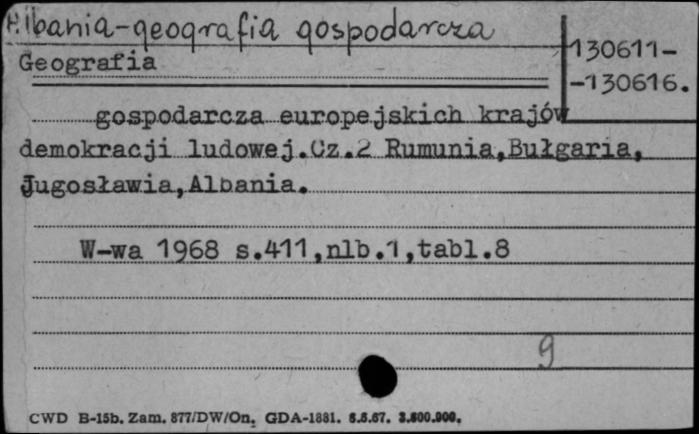 Albania-geografia gospodarcza
130611-
-130616.
Geografia
gospodarcza europejskich krajów
demokracji ludowej.Cz.2 Rumunia,Bułgaria,
Jugosławia,Albania.
W-wa 1968 s.411,nlb.1,tabl.8
9
CWD B-15b. Zam. 877/DW/On. GDA-1881. 5.5.67. 3.500.000.